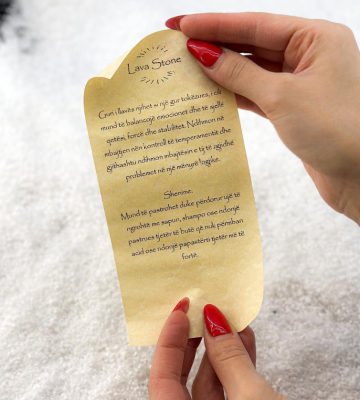 Lava Stone
Guri i llavës njihet w një gur tokëzues, i cili
mund të balancojë emocionet dhe të sjellë
qetësi, forcë dhe stabilitet. Ndihmon në
mbajtjen nën kontroll të temperamentit dhe
gjithashtu ndihmon mbajtësin e tij të zgjidhë
problemet në një mënyrë logjike.
Shënime:
Mund të pastrohet duke përdorur ujë të
ngrohtë me sapun, shampo ose ndonjë
pastrues tjetër të butë që nuk përmban
acid ose ndonjë papastërti tjetër më të
fortë.